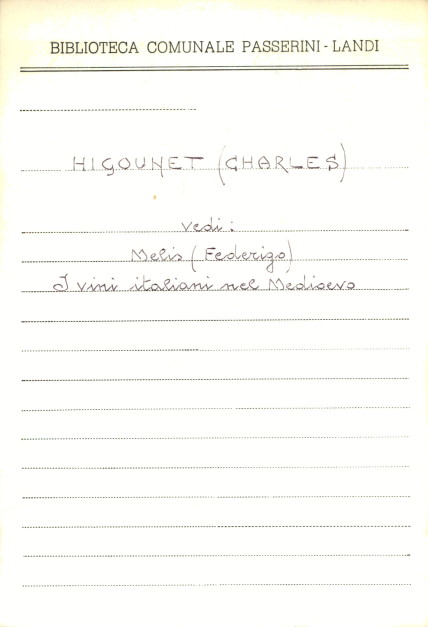 BIBLIOTECA COMUNALE PASSERINI - LANDI
HIGOUNET (CHARLES)
vedi:
Melis (Federigo)
I vini italiani nel Medioevo